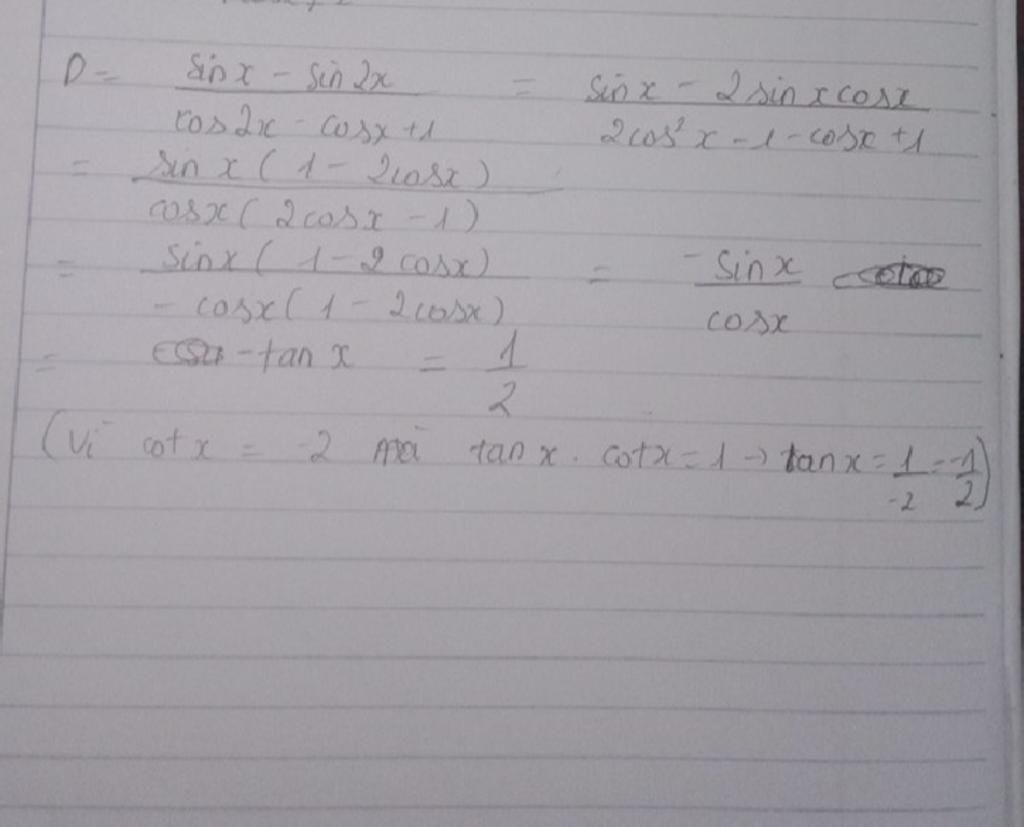 D = \frac{sin x - sin 2x}{cos 2x - cos x + 1} = \frac{sin x - 2 sin x cos x}{2cos² x - 1 - cos x + 1}
= \frac{sin x ( 1 - 2cos x )}{cos x ( 2cos x - 1 )}
= \frac{sin x ( 1 - 2 cos x )}{- cos x ( 1 - 2cos x )} = \frac{- sin x}{cos x}
= - tan x = \frac{1}{2}
(Vì cot x = -2 mà tan x . cot x = 1 → tan x = \frac{1}{-2} = \frac{-1}{2})